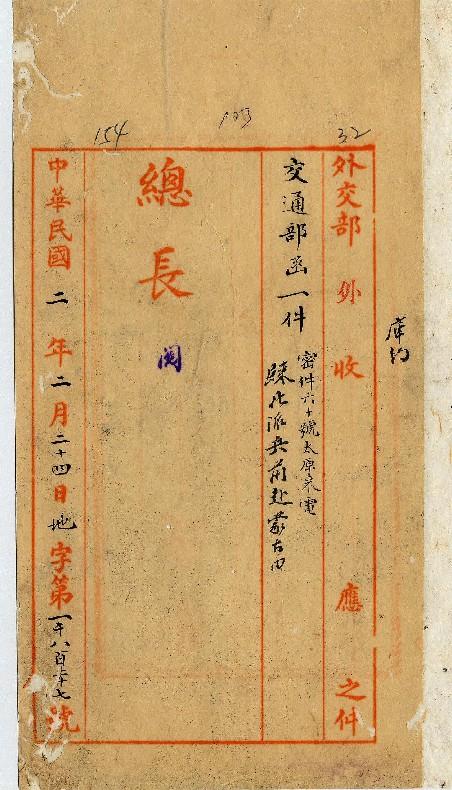 154
32
庫約
外交部 外 收 應 之件
交通部函一件
密件六十號太原來電
派兵前赴蒙古由
總長
閱
中華民國二年二月二十四日地字第一千八百二十七號